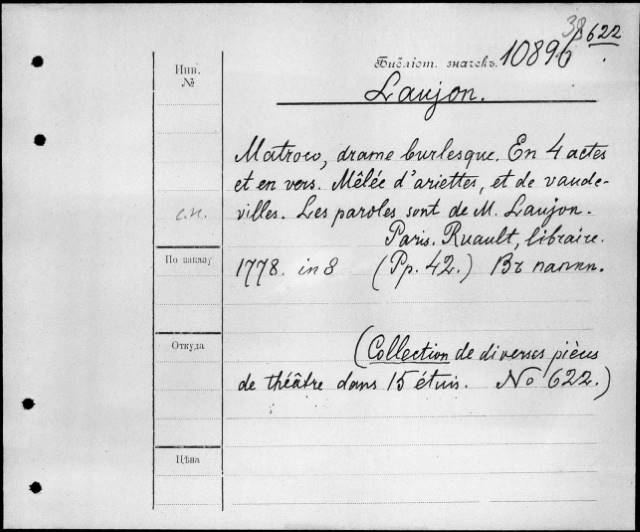 38/622
Инв.
№
Библіот. значекъ. 10896
Laujon.
Matroco, drame burlesque. En 4 actes
et en vers. Mêlée d'ariettes, et de vaude-
villes. Les paroles sont de M. Laujon.
с.н.
Paris. Ruault, libraire.
По заказу
1778. in 8 (Pp. 42.) Въ папкѣ.
Откуда
(Collection de diverses pièces
de théâtre dans 15 étuis. No 622.)
Цѣна